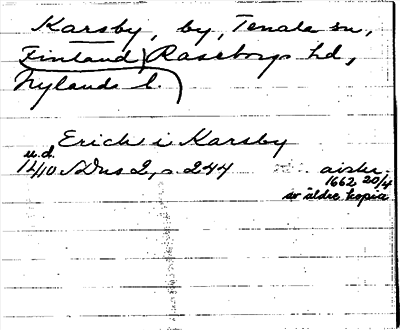 Karsby, by, Tenala sn,
Finland) Raseborgs hd,
Nylands l.
Erich i Karsby
u.d.
12/10 SDns 2, s. 244 avskr.
1662 20/4
av äldre kopia